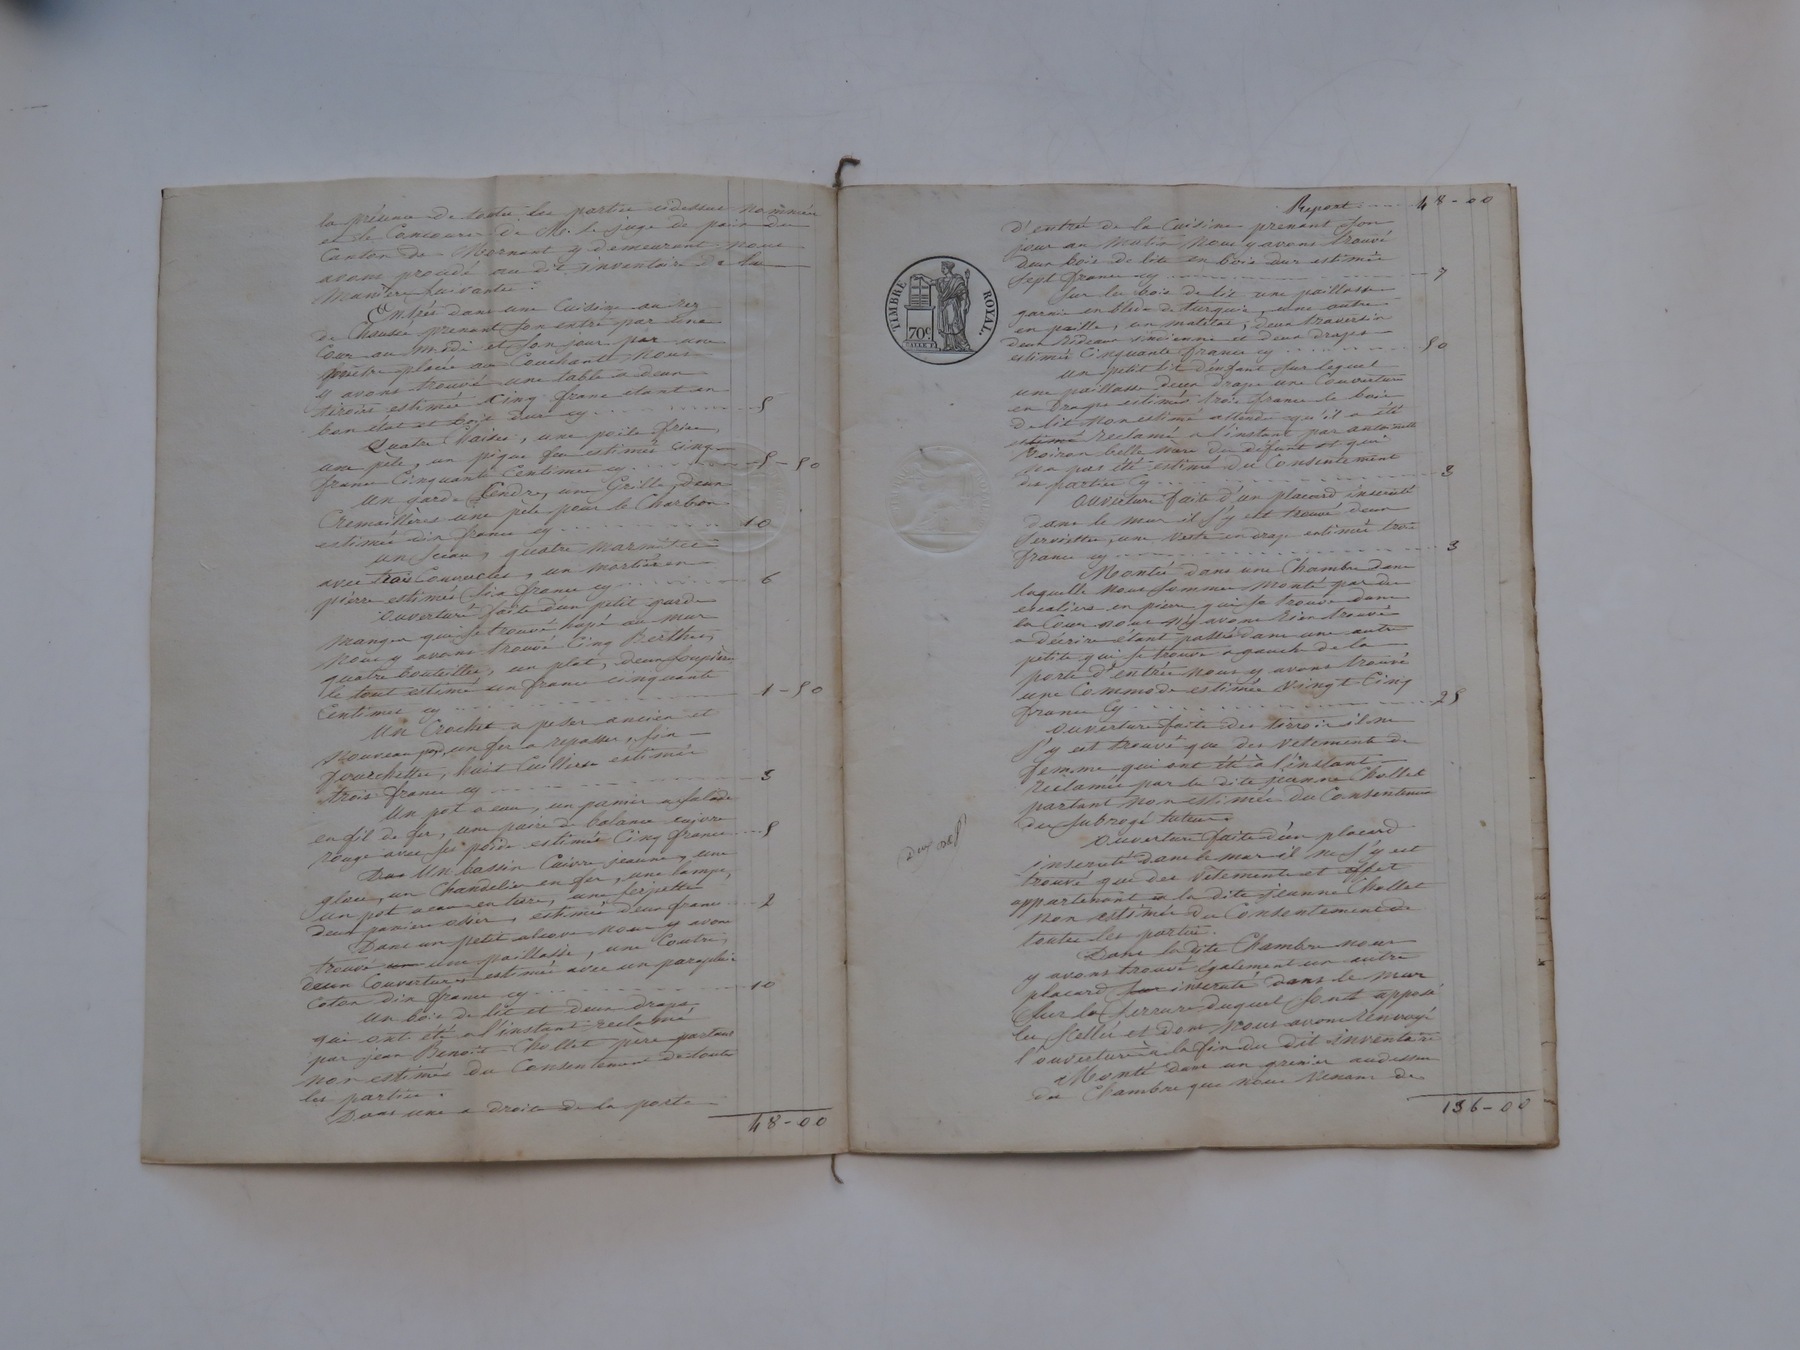 la présence de toutes les parties cidessus nommées
et le Concours de Mr. le Juge de paix du
Canton de Mornant y demeurant nous
avons procédé au dit inventaire de la
Manière suivante :
Entrés dans une Cuisine au rez
de Chaussée prenant son entré par une
Cour au midi et son jour par une
fenêtre placée au Couchant Nous
y avons trouvé une table a deux
tiroirs estimée Cinq francs étant en
bon état et bois dur cy 5
Quatre Chaises, une poile frire,
une pèle, un pique feu estimés Cinq
francs Cinquante Centimes cy 5-50
Un garde Cendre, une Grille, deux
Cremaillères une pèle pour le Charbon
estimés dix francs cy 10
un Sceau, quatre Marmites
avec trois Couvercles, un mortier en
pierre estimés six francs cy 6
Ouverture faite d'un petit garde
manger qui se trouve au mur
Nous y avons trouvé Cinq Berthes,
quatre bouteilles, un plat, deux soupières
le tout estimé un franc cinquante
Centimes cy 1-50
Un Crochet a peser ancien et
Nouveau poid, un fer a repasser, six
fourchettes, huit Cuillers estimés
trois francs cy 3
Un pot a eau, un panier a salade
en fil de fer, une paire de balance cuivre
rouge avec ses poids estimés Cinq francs 5
Un bassin Cuivre jeaune, une
glace, un Chandelier en fer, une lampe,
un pot a eau en terre, une serpette
deux paniers osier, estimés deux francs 2
Dans un petit alcove nous y avons
trouvé une paillasse, une Couetre,
deux Couvertures estimés avec un parapluie
Coton dix francs cy 10
Un bois de lit et deux draps
qui ont été a l'instant réclamés
par Jean Benoit Chollet père partant
non estimés du Consentement de toutes
les parties.
Dans une a droite de la porte
48-00
Report 48-00
d'entrée de la Cuisine prenant son
jour au Matin Nous y avons trouvé
Deux bois de lits en bois dur estimés
Sept francs cy 7
Sur les bois de lit une paillasse
garnie en bled de turquie, une autre
en paille, un matelas, deux traversins
deux Rideaux indienne et deux draps
estimés Cinquante francs cy 50
un petit lit d'enfant sur lequel
une paillasse deux draps une Couverture
en Draps estimés trois francs le bois
de lit Non estimé attendu qu'il a été
estimé réclamé a l'instant par antoinette
Voiron belle mère du défunt et qui
n'a pas été estimé du Consentement
des parties Cy 3
Ouverture faite d'un placard inserüté
dans le mur il s'y est trouvé deux
Serviettes, une Veste en drap estimés trois
francs cy 3
Montés dans une Chambre dans
laquelle nous sommes Monté par des
escaliers en pierre qui se trouve dans
la Cour nous n'y avons Rien trouvé
a décrire étant passés dans une autre
petite qui se trouve a gauche de la
porte d'entrée nous y avons trouvé
une Commode estimée Vingt Cinq
francs Cy 25
Ouverture faite des tiroirs il ne
s'y est trouvé que des Vetements de
femme qui ont été a l'instant
réclamés par la dite jeanne Chollet
partant Non estimés du Consentement
du subrogé tuteur.
Ouverture faite d'un placard
inserüté dans le mur il ne s'y est
trouvé que des Vetements et effet
appartenant a la dite jeanne Chollet
Non estimés du Consentement de
toutes les parties.
Dans la dite Chambre nous
y avons trouvé également un autre
placard sur inserüté dans le mur
Sur la Serrure duquel sont apposé
les scellés et dont nous avons Renvoyé
l'ouverture a la fin du dit inventaire
Monté dans un grenier audessus
de Chambre que nous Venons de
136-00
TIMBRE ROYAL
70c